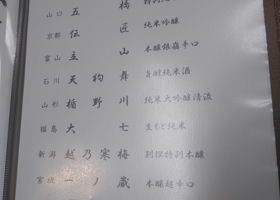 山口 五 橋 特別
京都 伝 匠 純米吟醸
富山 立 山 本醸銀嶺辛口
石川 天 狗 舞 旨醇純米酒
山形 楯 野 川 純米大吟醸清流
福島 大 七 生もと純米
新潟 越 乃 寒 梅 別撰特別本醸
宮城 一 ノ 蔵 本醸超辛口